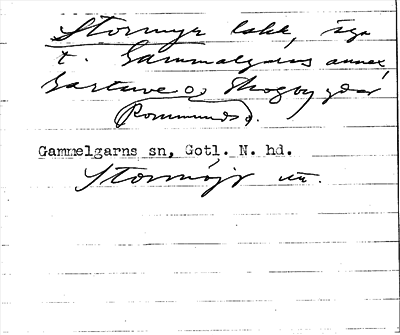 Stormyr lokk, äga
t. Gammalgarns annex,
Gartarve o. Skogby gdar
(Rommunds).
Gammelgarns sn, Gotl. N. hd.
Stormyr